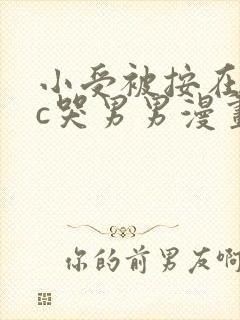 小受被按在
c哭男男漫畫
你的前男友啊